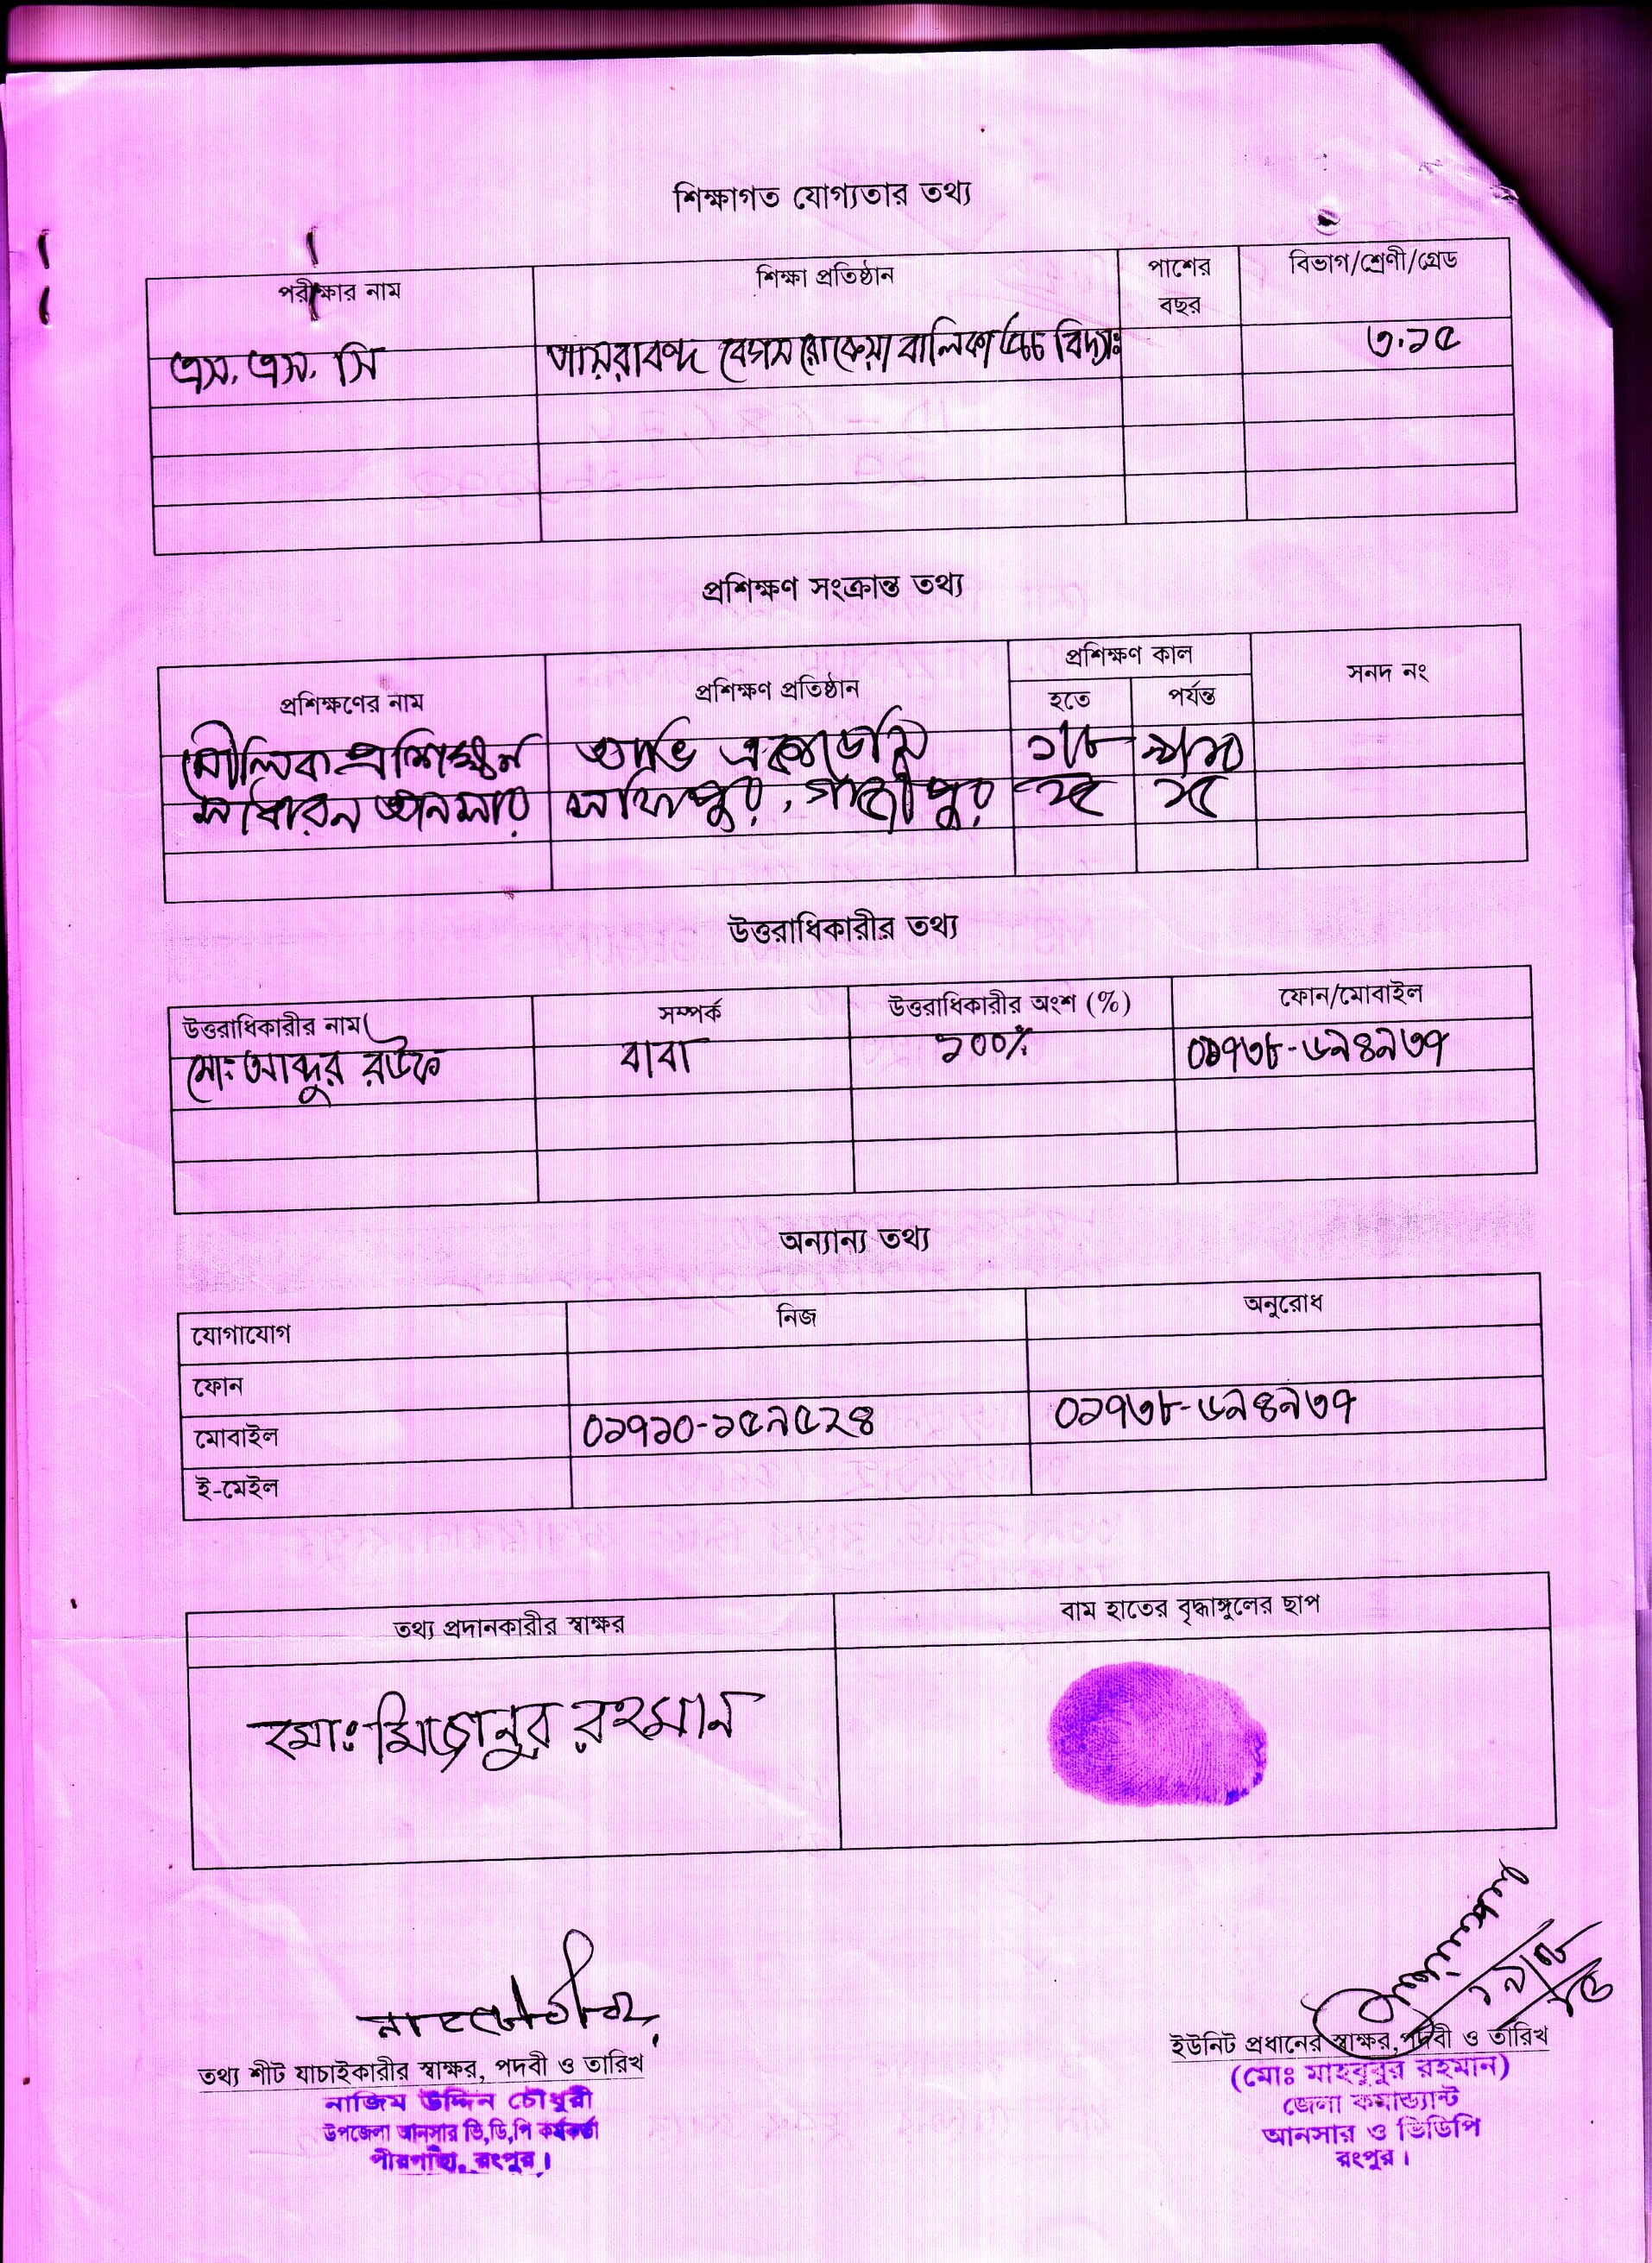 শিক্ষাগত যোগ্যতার তথ্য
পরীক্ষার নাম শিক্ষা প্রতিষ্ঠান পাশের বছর বিভাগ/শ্রেণী/গ্রেড
এস. এস. সি বেগম রোকেয়া বালিকা উচ্চ বিদ্যাঃ ৩.১৫
প্রশিক্ষণ সংক্রান্ত তথ্য
প্রশিক্ষণের নাম প্রশিক্ষণ প্রতিষ্ঠান প্রশিক্ষণ কাল সনদ নং
হতে পর্যন্ত
মৌলিক প্রশিক্ষন একাডেমি
সাধারন আনসার সফিপুর, গাজীপুর ১৫ ১৫
উত্তরাধিকারীর তথ্য
উত্তরাধিকারীর নাম সম্পর্ক উত্তরাধিকারীর অংশ (%) ফোন/মোবাইল
মোঃ আব্দুর রউফ বাবা ১০০% ০১৭৩৮-৬৯৪৯৩৭
অন্যান্য তথ্য
যোগাযোগ নিজ অনুরোধ
ফোন
মোবাইল ০১৭১০-১৫৯৫২৪ ০১৭৩৮-৬৯৪৯৩৭
ই-মেইল
তথ্য প্রদানকারীর স্বাক্ষর বাম হাতের বৃদ্ধাঙ্গুলের ছাপ
মোঃ মিজানুর রহমান
তথ্য শীট যাচাইকারীর স্বাক্ষর, পদবী ও তারিখ
নাজিম উদ্দিন চৌধুরী
উপজেলা আনসার ভি,ডি,পি কর্মকর্তা
পীরগাছা, রংপুর।
ইউনিট প্রধানের স্বাক্ষর, পদবী ও তারিখ
(মোঃ মাহবুবুর রহমান)
জেলা কমান্ড্যান্ট
আনসার ও ভিডিপি
রংপুর।